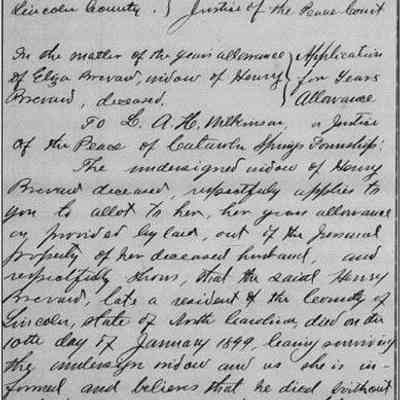 Lincoln County. } Justice of the Peace Court
In the matter of the years allowance } Application
of Eliza Brevard, widow of Henry } for Years
Brevard, deceased. } Allowance
To L. A. H. Wilkinson, a Justice
of the Peace of Catawba Springs Township:
The undersigned widow of Henry
Brevard deceased, respectfully applies to
you to allot to her, her years allowance
as provided by law, out of the personal
property of her deceased husband, and
respectfully shows, that the said Henry
Brevard, late a resident of the County of
Lincoln, state of North Carolina, died on the
10th day of January 1899, leaving surviving
the undersign widow and as she is in-
formed and believes that he died without